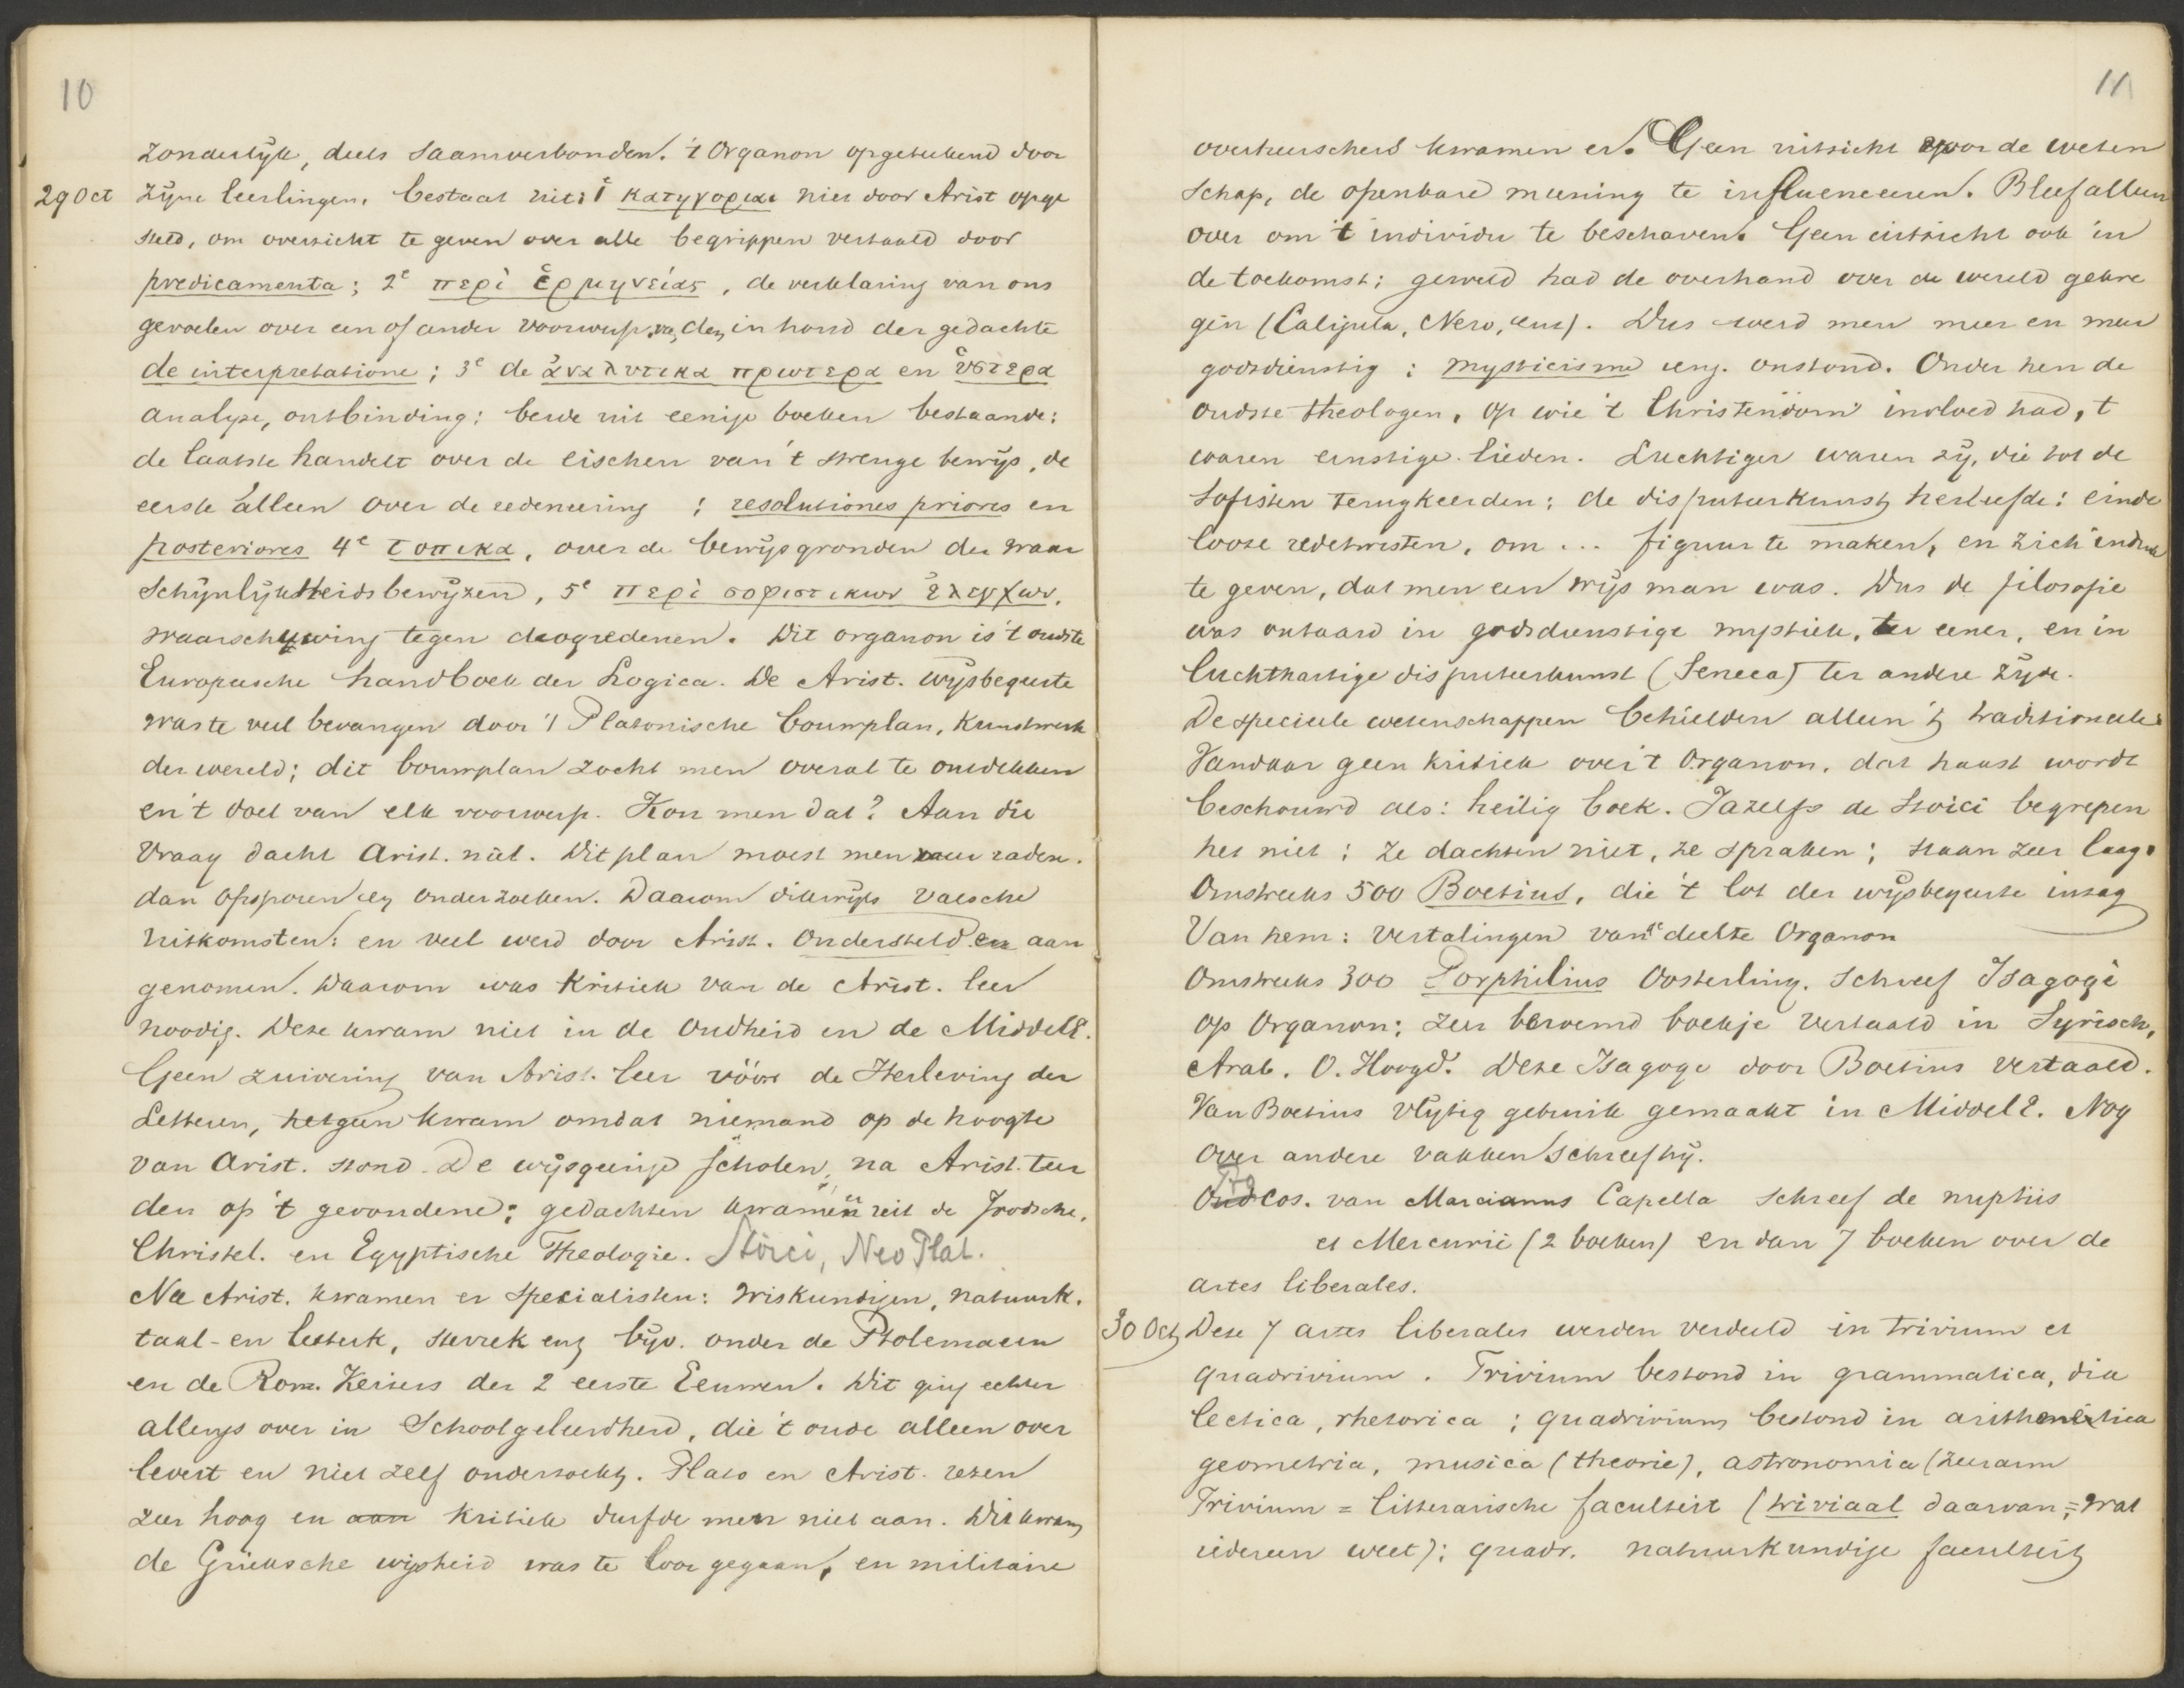 10
zonderlijk, deels saamverbonden. 't Organon opgetekend door
29 Oct zijne leerlingen, bestaat uit: 1° κατηγοριαι niet door Arist opge
steld, om overzicht te geven over alle begrippen vertaald door
predicamenta; 2e περὶ ἑρμηνείας, de verklaring van ons
gevoelen over een of ander voorwerp, van den inhoud der gedachte
de interpretatione; 3e de ἀναλυτικα πρωτερα en ὑστερα
analyse, ontbinding: beide uit eenige boeken bestaande:
de laatste handelt over de eischen van 't strenge bewijs, de
eerste alleen over de redeneering; resolutiones priores en
posteriores 4e τοπικα, over de bewijsgronden der waar
schijnlijkheidsbewijzen, 5e περὶ σοφιστικων ἐλεγχων,
waarschuwing tegen drogredenen. Dit organon is 't oudste
Europeesche handboek der Logica. De Arist. wijsbegeerte
was te veel bevangen door 't Platonische bouwplan, kunstwerk
der wereld; dit bouwplan zocht men overal te ontdekken
en 't doel van elk voorwerp. Kon men dat? Aan die
Vraag dacht Arist. niet. Dit plan moest men raden.
dan opsporen en onderzoeken. Daarom dikwijls valsche
uitkomsten: en veel werd door Arist. ondersteld en aan
genomen. Daarom was kritiek van de Arist. leer
noodig. Deze kwam niet in de Oudheid en de MiddelE.
Geen zuivering van Arist. leer vóór de Herleving der
Letteren, hetgeen kwam omdat niemand op de hoogte
van Arist. stond. De wijsgeerige scholen, na Arist. teer
den op 't gevondene; gedachten kwamen uit de Joodsche,
Christel. en Egyptische Theologie. Stoici, Neo Plat.
Na Arist. kwamen er specialisten: wiskundigen, natuurk.
taal- en letterk, sterrek enz bijv. onder de Ptolemaeen
en de Rom. Keizers der 2 eerste Eeuwen. Dit ging echter
allengs over in Schoolgeleerdheid, die 't oude alleen over
levert en niet zelf onderzoekt. Plato en Arist. rezen
zeer hoog en aan kritiek durfde men niet aan. Dit kwam
de Grieksche wijsheid was te loor gegaan, en militaire
11
overheerschers kwamen er. Geen uitzicht voor de weten
schap, de openbare meening te influenceeren. Bleef alleen
over om 't individu te beschaven. Geen uitzicht ook in
de toekomst; geweld had de overhand over de wereld gekre
gen (Caligula, Nero, enz). Dus werd men meer en meer
godsdienstig: mysticisme enz. onstond. Onder hen de
oudste theologen, op wie 't Christendom invloed had, 't
waren ernstige lieden. Luchtiger waren zij, die tot de
Sofisten terugkeerden; de disputeerkunst herleefde: einde
looze redetwisten, om ... figuur te maken, en zich indruk
te geven, dat men een wijs man was. Dus de filosofie
was ontaard in godsdienstige mystiek, ter eener, en in
luchthartige disputeerkunst (Seneca) ter andere zijde.
De speciale wetenschappen behielden alleen 't traditioneele
Vandaar geen kritiek over 't Organon, dat haast wordt
beschouwd als: heilig boek. Jazelfs de Stoici begrepen
het niet; ze dachten niet, ze spraken; staan zeer laag.
Omstreeks 500 Boetius, die 't lot der wijsbegeerte inzag
Van hem: vertalingen van deelte Organon
Omstreeks 300 Porphilius Oosterling. Schreef Isagoge
op Organon; zeer beroemd boekje vertaald in Syrisch,
Arab. O. Hoogd. Deze Isagoge door Boetius vertaald.
Van Boetius vlijtig gebruik gemaakt in MiddelE. Nog
over andere vakken schreef hij.
cos. van Marcianus Capella schreef de nuptiis
et Mercurii (2 boeken) en dan 7 boeken over de
artes liberales.
30 Oct Deze 7 artes liberales werden verdeeld in trivium et
quadrivium. Trivium bestond in grammatica, dia
lectica, rhetorica; quadrivium bestond in arithmetica
geometria, musica (theorie), astronomia (zeer arm
Trivium = litterarische faculteit (triviaal daarvan; = wat
iedereen weet); quadr. natuurkundige faculteit